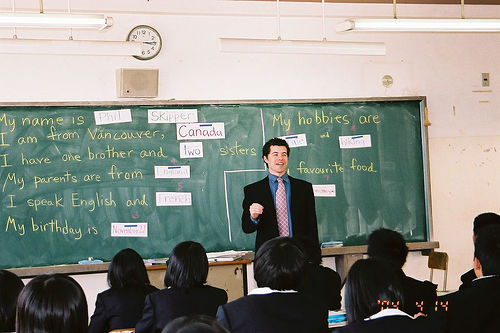 My name is Phil Skipper
I am from Vancouver, Canada
I have one brother and two sisters
My parents are from England
I speak English and French
My birthday is November 22
My hobbies are
and hiking
favourite food
'04 4 14